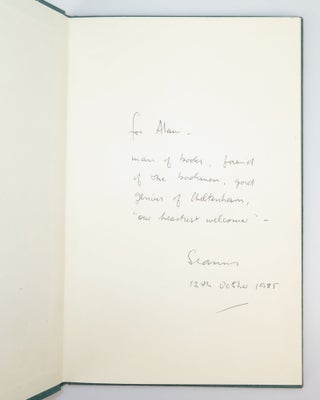 for Alan -
man of books, friend
of the bookman, good
genius of Cheltenham,
"our heartiest welcome" -
Seamus
12th October 1985